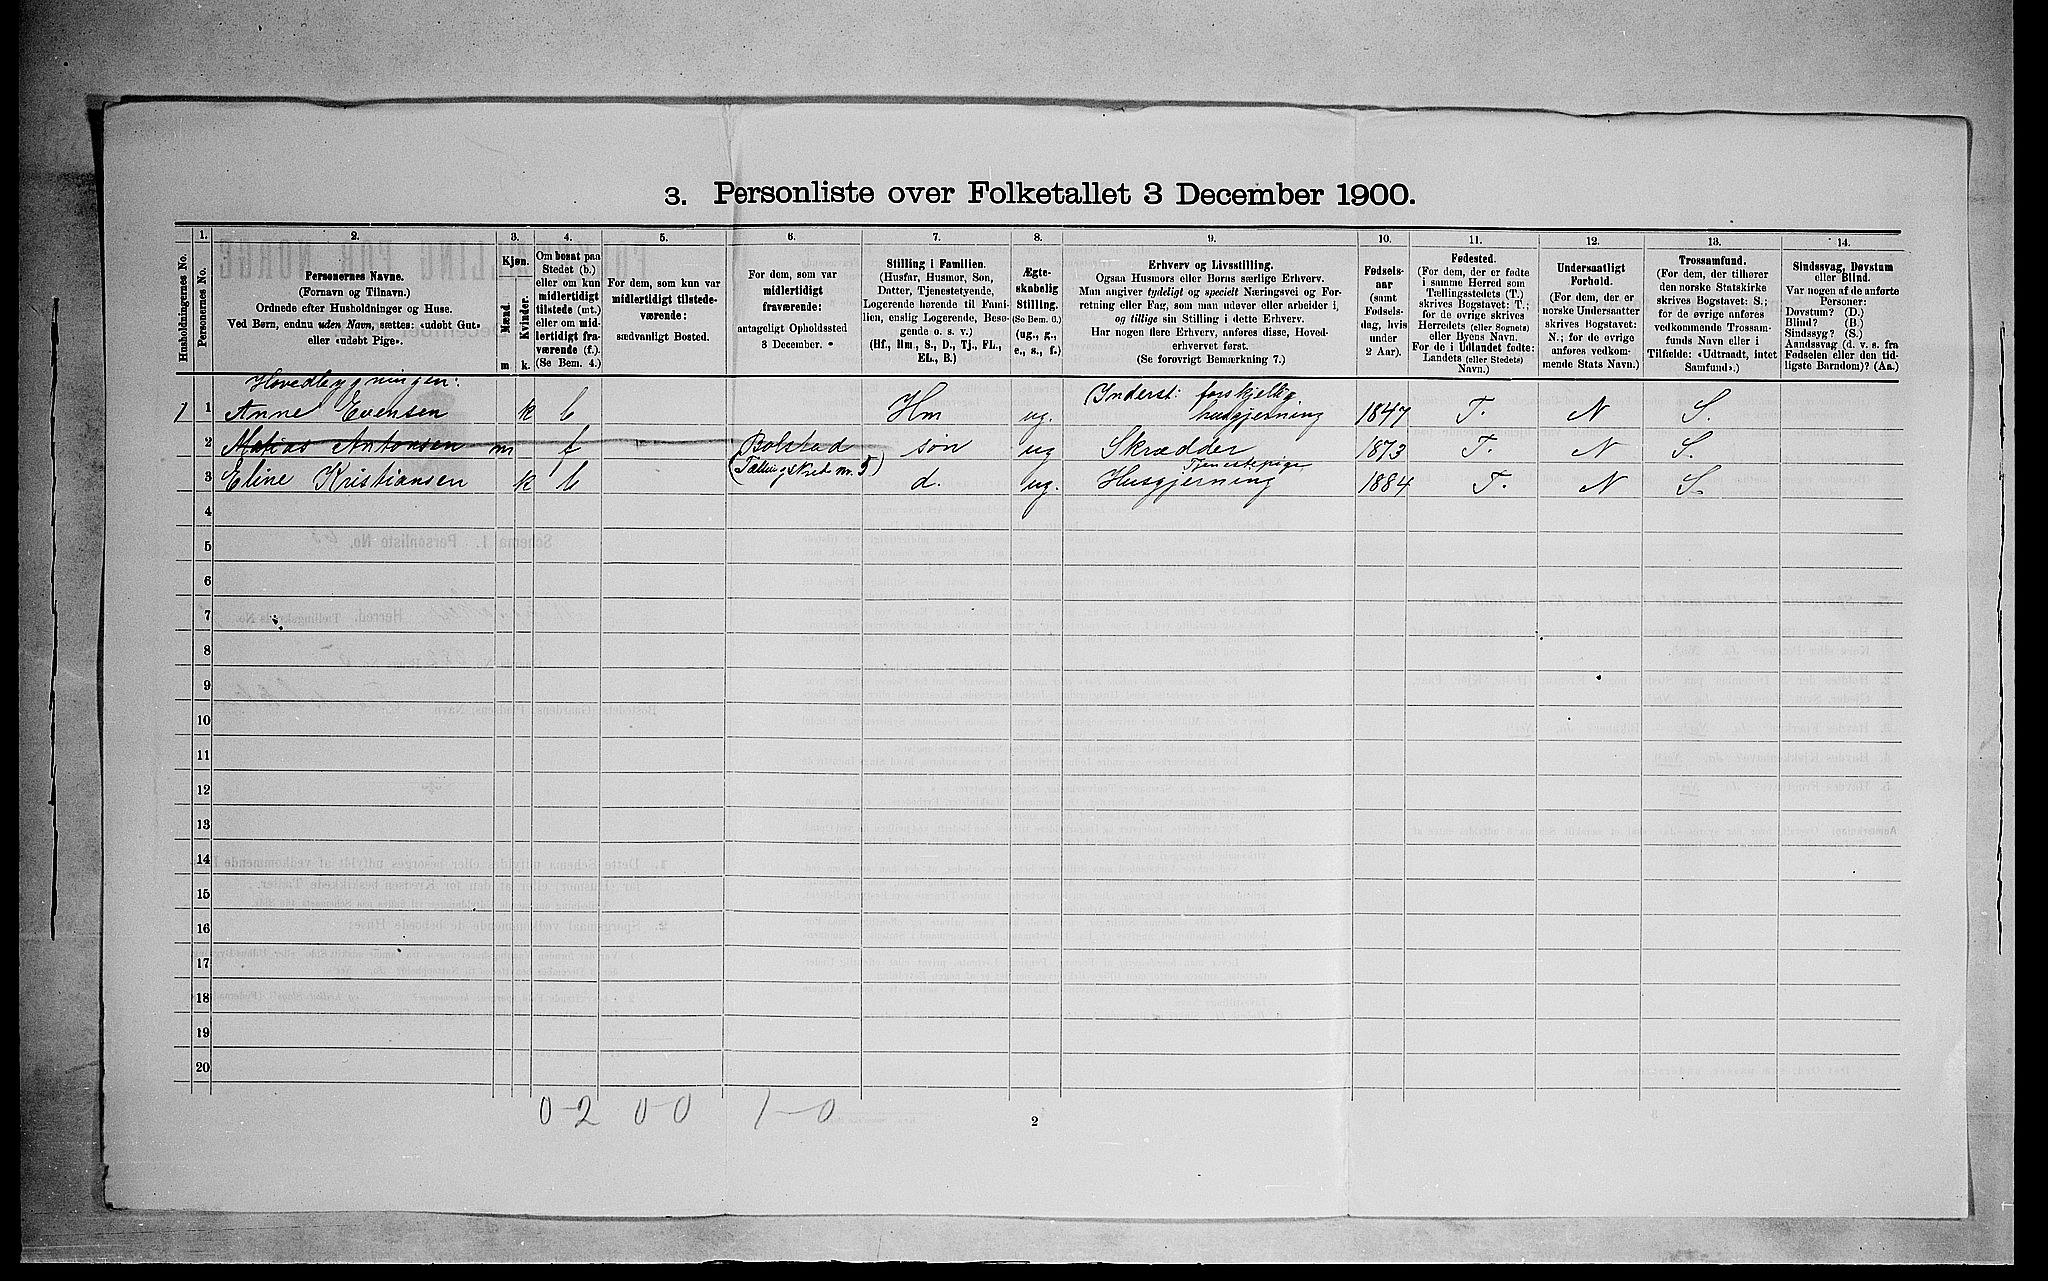 3. Personliste over Folketallet 3 December 1900.
Husholdningernes No.
1.
Personernes No.
2.
Personernes Navne.
(Fornavn og Tilnavn.)
Ordnede efter Husholdninger og Huse.
Ved Børn, endnu uden Navn, sættes: «udøbt Gut»
eller «udøbt Pige».
3.
Kjøn.
Mænd.
Kvinder.
m
k.
4.
Om bosat paa
Stedet (b.)
eller om kun
midlertidigt
tilstede (mt.)
eller om mid-
lertidigt fra-
værende (f.).
(Se Bem. 4.)
5.
For dem, som kun var
midlertidigt tilstede-
værende:
sædvanligt Bosted.
6.
For dem, som var
midlertidigt
fraværende:
antageligt Opholdssted
3 December.
7.
Stilling i Familien.
(Husfar, Husmor, Søn,
Datter, Tjenestetyende,
Logerende hørende til Fami-
lien, enslig Logerende, Besø-
gende o. s. v.)
(Hf., Hm., S., D., Tj., FL.,
EL., B.)
8.
Ægte-
skabelig
Stilling.
(Se Bem. 6.)
(ug., g.,
e., s., f.)
9.
Erhverv og Livsstilling.
Ogsaa Husmors eller Børns særlige Erhverv.
Man angiver tydeligt og specielt Næringsvei og For-
retning eller Fag, som man udøver eller arbeider i,
og tillige sin Stilling i dette Erhverv.
Har nogen flere Erhverv, anføres disse, Hoved-
erhvervet først.
(Se forøvrigt Bemærkning 7.)
10.
Fødsels-
aar
(samt
Fødsels-
dag, hvis
under
2 Aar).
11.
Fødested.
(For dem, der er fødte
i samme Herred som
Tællingsstedets (T.)
skrives Bogstavet: T.;
for de øvrige skrives
Herredets (eller Sognets)
eller Byens Navn.
For de i Udlandet fødte:
Landets (eller Stedets)
Navn.)
12.
Undersaatligt
Forhold.
(For dem, der er
norske Undersaatter
skrives Bogstavet:
N.; for de øvrige
anføres vedkom-
mende Stats Navn.)
13.
Trossamfund.
(For dem, der tilhører
den norske Statskirke
skrives Bogstavet: S.;
for de øvrige anføres
vedkommende Trossam-
funds Navn eller i
Tilfælde: «Udtraadt, intet
Samfund».)
14.
Sindssvag, Døvstum
eller Blind.
Var nogen af de anførte
Personer:
Døvstum? (D.)
Blind? (B.)
Sindssyg? (S.)
Aandssvag (d. v. s. fra
Fødselen eller den tid-
ligste Barndom)? (Aa.)
Hovedbygningen:
1 1 Anne Evensen k b Hm ug. Inderst: forskjellig husgjerning 1847 T. N S.
2 Matias Antonsen m f Bolstad (Tællingskred nr. 5) søn ug Skrædder 1873 T. N S.
3 Eline Kristiansen k b d. ug. Husgjerning Tjenestepige 1884 T. N S.
4
5
6
7
8
9
10
11
12
13
14
15
16
17
18
19
20
0-2 0-0 1-0
2